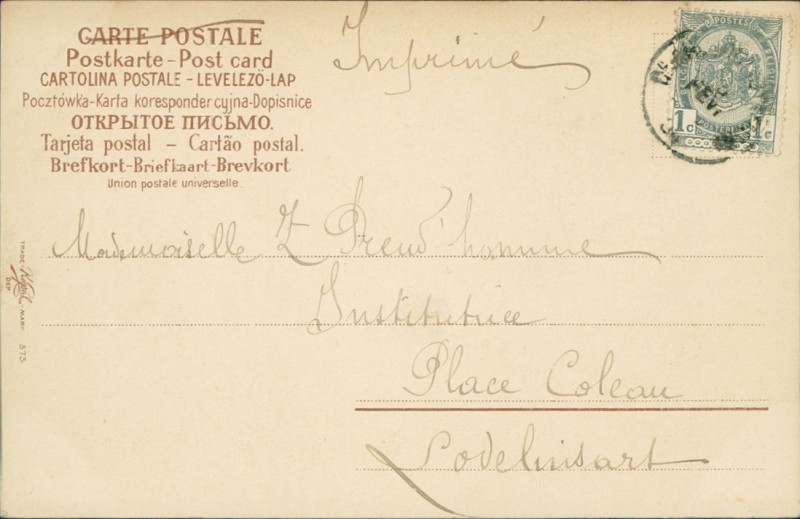 CARTE POSTALE
Postkarte-Post card
CARTOLINA POSTALE - LEVELEZÖ-LAP
Pocztówka-Karta korespondencyjna-Dopisnice
ОТКРЫТОЕ ПИСЬМО.
Tarjeta postal - Cartão postal.
Brefkort-Briefkaart-Brevkort
Union postale universelle.
Imprimé
POSTES
1c 1c
FEVR
Mademoiselle Z Preud'homme
Institutrice
Place Coleau
Lodelinsart
TRADE MARK
DEP.
373